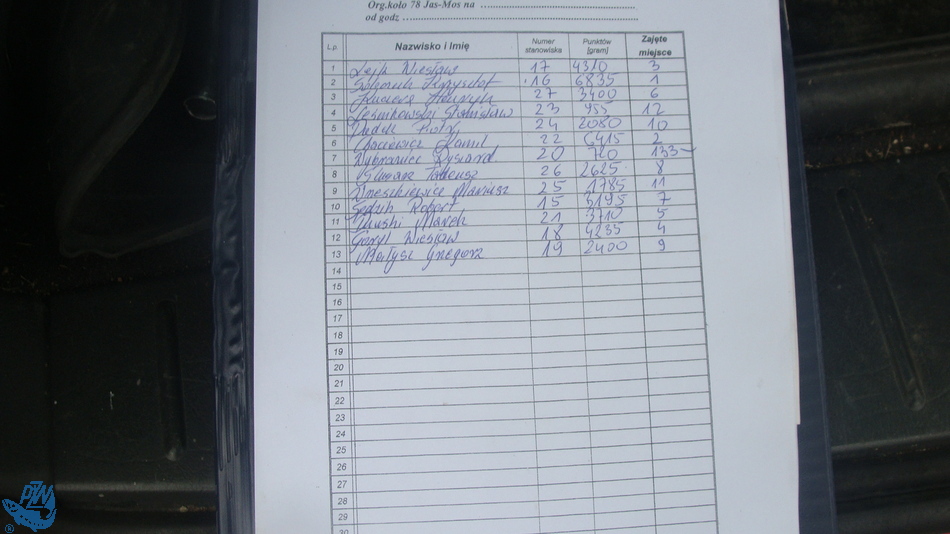 Org.koło 78 Jas-Mos na ..........
od godz ..........
L.p. Nazwisko i Imię Numer stanowiska Punkty [gram] Zajęte miejsce
1 Lejk Wiesław 17 4310 3
2 Krzysztof 16 6835 1
3 Kuciera Henryk 27 3400 6
4 Lesnikowski Stanisław 23 955 12
5 Dudek Piotr 24 2080 10
6 Kamil 22 6415 2
7 Rybkowicz Ryszard 20 720 13
8 Ślusarz Tadeusz 26 2625 8
9 Mariusz 25 1785 11
10 Robert 15 3195 7
11 Marek 21 3710 5
12 Goryl Wiesław 18 4235 4
13 Małysz Grzegorz 19 2400 9
14
15
16
17
18
19
20
21
22
23
24
25
26
27
28
29
30
PZW